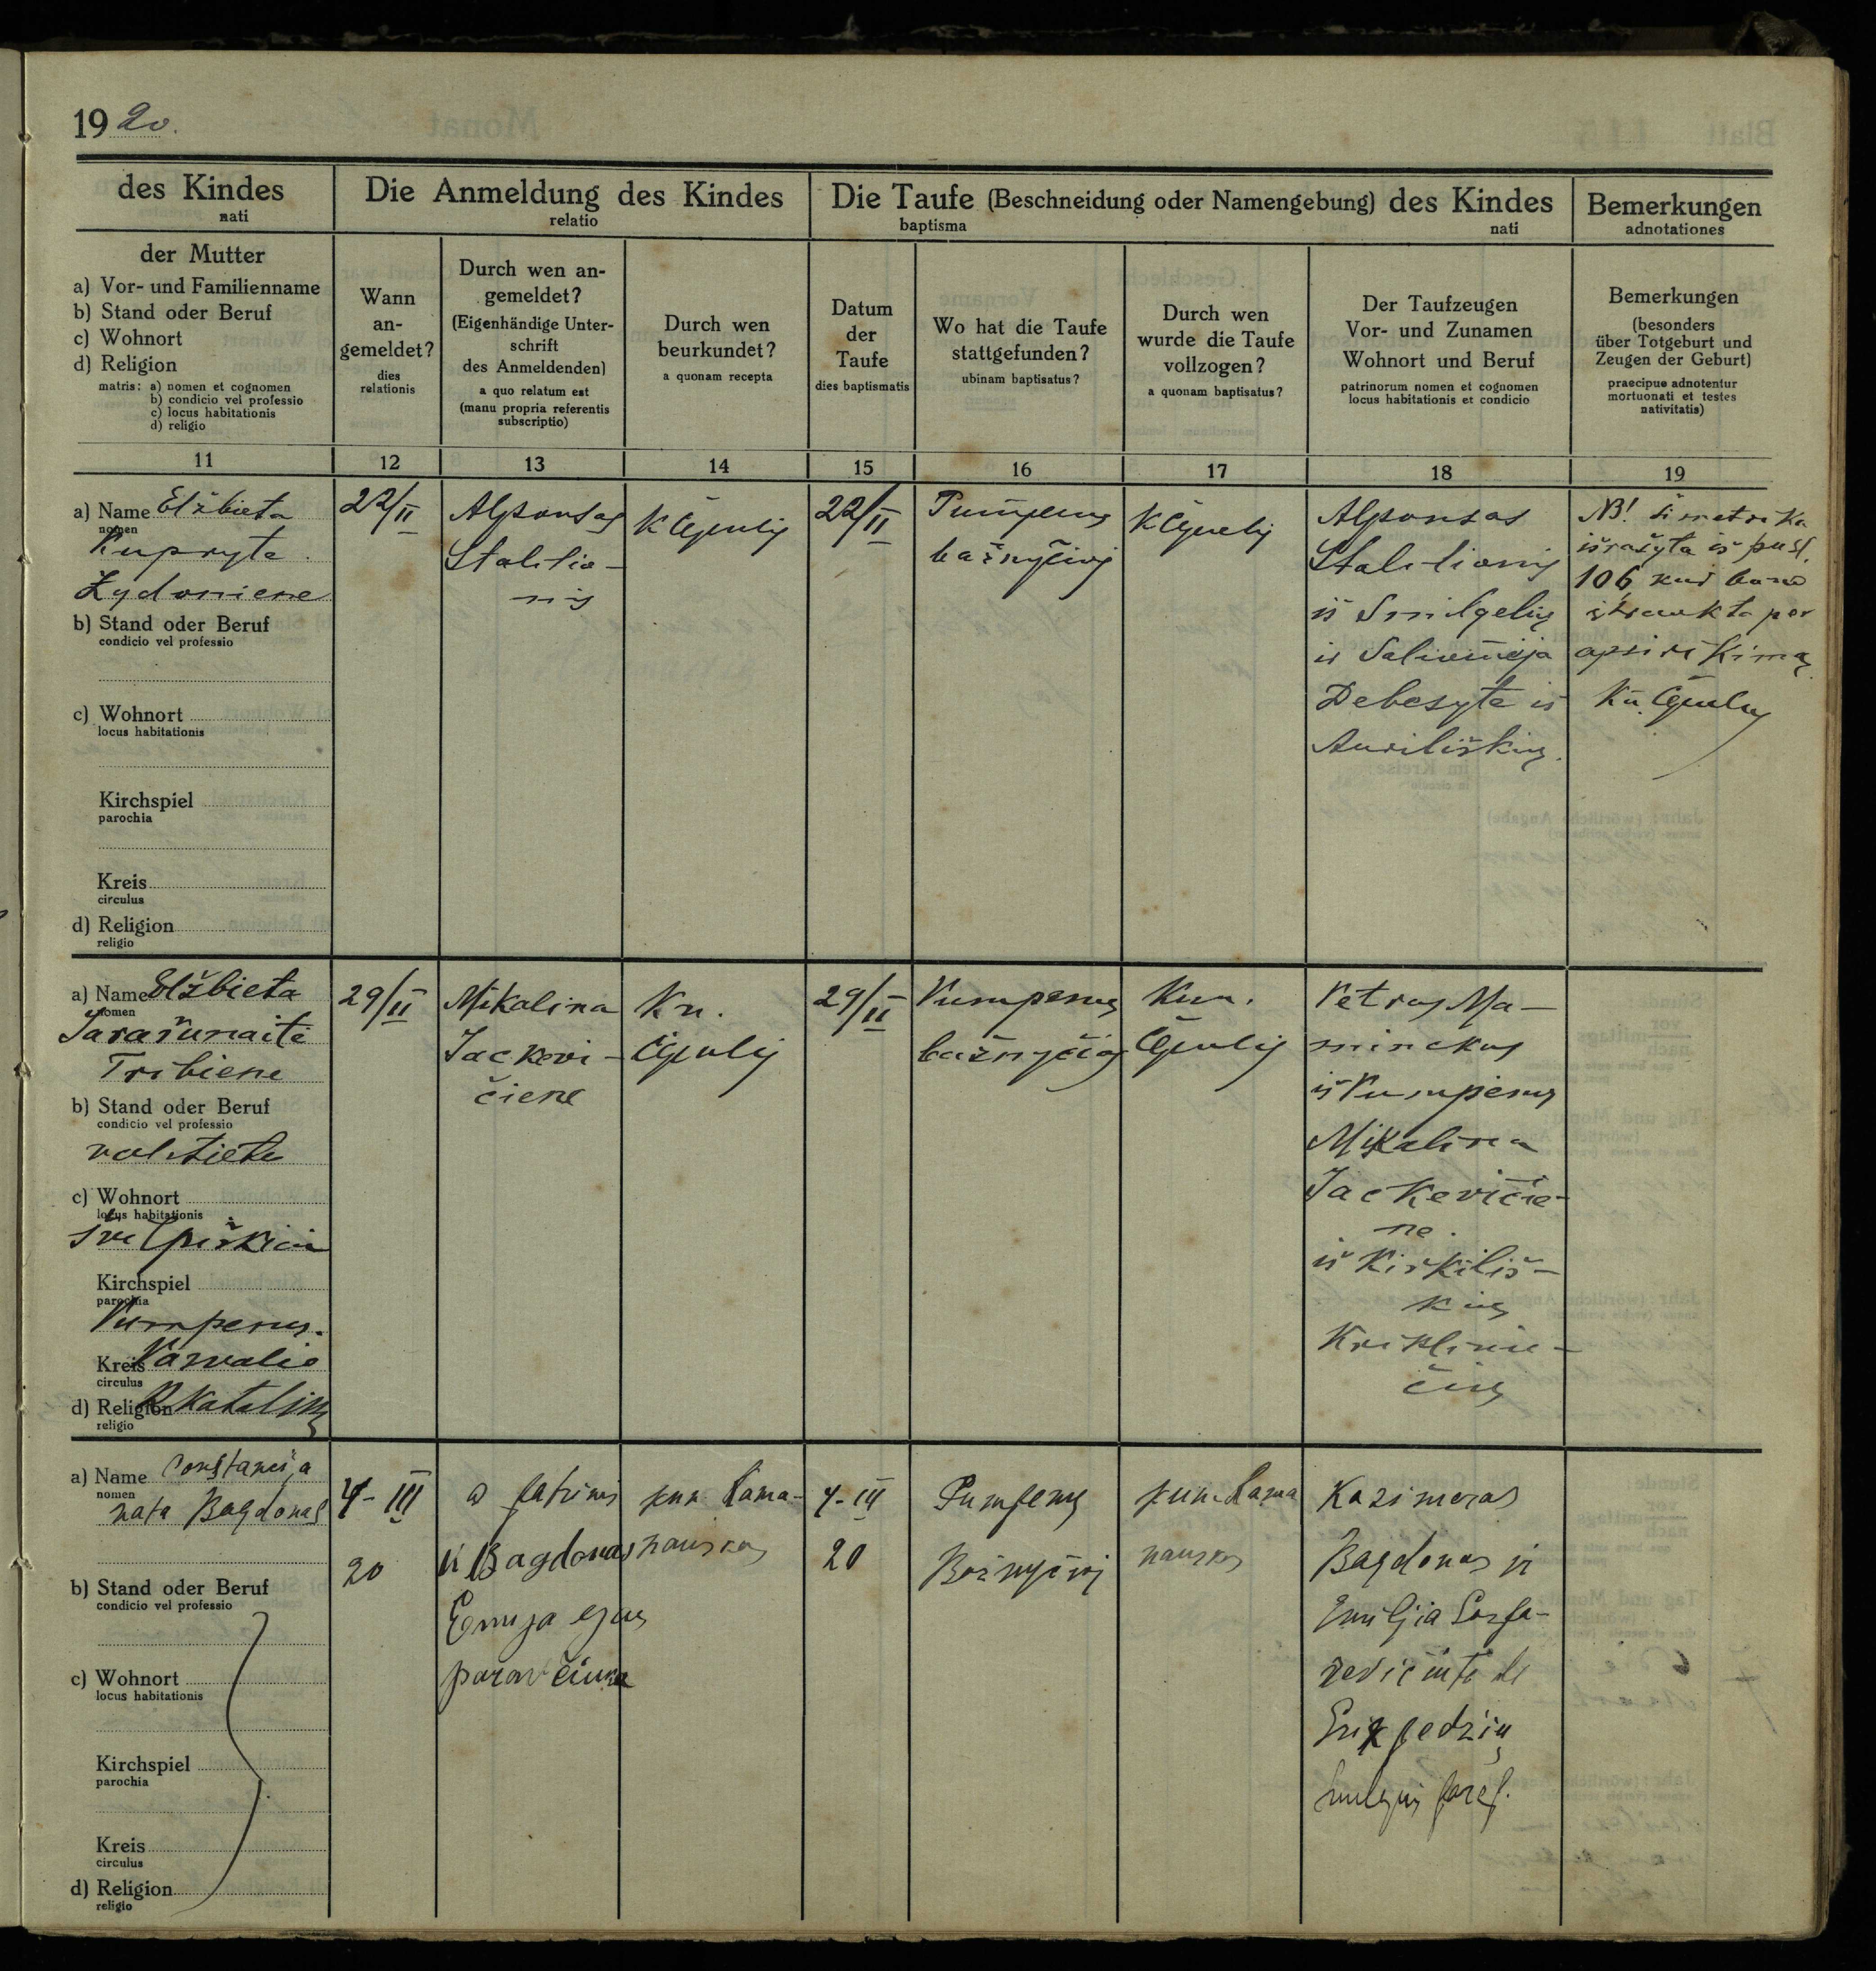 1920.
des Kindes
nati
Die Anmeldung des Kindes
relatio
Die Taufe (Beschneidung oder Namengebung) des Kindes
baptisma nati
Bemerkungen
adnotationes
der Mutter
a) Vor- und Familienname
b) Stand oder Beruf
c) Wohnort
d) Religion
matris: a) nomen et cognomen
b) condicio vel professio
c) locus habitationis
d) religio
Wann
an-
gemeldet?
dies
relationis
Durch wen an-
gemeldet?
(Eigenhändige Unter-
schrift
des Anmeldenden)
a quo relatum est
(manu propria referentis
subscriptio)
Durch wen
beurkundet?
a quonam recepta
Datum
der
Taufe
dies baptismatis
Wo hat die Taufe
stattgefunden?
ubinam baptisatus?
Durch wen
wurde die Taufe
vollzogen?
a quonam baptisatus?
Der Taufzeugen
Vor- und Zunamen
Wohnort und Beruf
patrinorum nomen et cognomen
locus habitationis et condicio
Bemerkungen
(besonders
über Totgeburt und
Zeugen der Geburt)
praecipue adnotentur
mortuonati et testes
nativitatis)
11 12 13 14 15 16 17 18 19
a) Name Elžbieta
nomen
Kupryte
Žydoniene
b) Stand oder Beruf
condicio vel professio
c) Wohnort
locus habitationis
Kirchspiel
parochia
Kreis
circulus
d) Religion
religio
22/II
Alponsas
Stalilio-
nis
K
22/II
Pumpenų
bažnyčioj
K
Alponsas
Stalilionis
iš Smilgelių
ir Saliomėja
Debesyte iš
Auriliškių.
NB! ši metrika
išrašyta iš pusl.
106 kur buvo
įtraukta per
apsirikimą
Ku.
a) Name Elžbieta
nomen
Tarašunaitė
Tribiene
b) Stand oder Beruf
condicio vel professio
valstietė
c) Wohnort
locus habitationis
Kirchspiel
parochia
Pumpenų.
Kreis Pasvalio
circulus
d) Religion R Katalikų
religio
29/II
Mikalina
Jackevi-
čiene
Kn.
29/II
Pumpenų
bažnyčioj
Kun.
Petras Ma-
minckas
iš Pumpenų
Mikalina
Jackevičie-
ne.
iš Kirkiliš-
kių
Kriklinie-
čių
a) Name Constancija
nomen
nata Bagdonas
b) Stand oder Beruf
condicio vel professio
c) Wohnort
locus habitationis
Kirchspiel
parochia
Kreis
circulus
d) Religion
religio
4-III
20
a patrini
K Bagdonas
kun Rama-
nauskas
4-III
20
Pumpenų
Bažnyčioj
kun. Rama
nauskas
Kazimeras
Bagdonas ir
Emilija